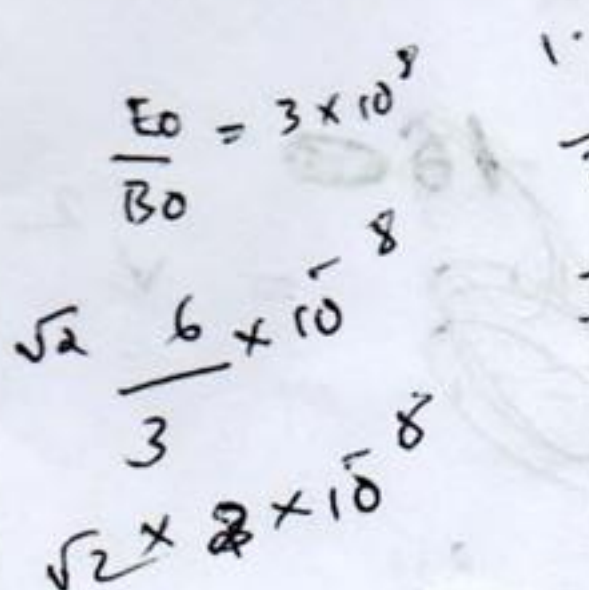 E0/B0 = 3 × 10^8
√2 6/3 × 10^-8
√2 × 2 × 10^-8